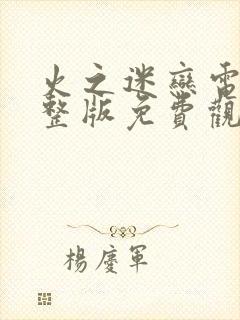 火之迷戀電
整版免費觀
楊慶軍